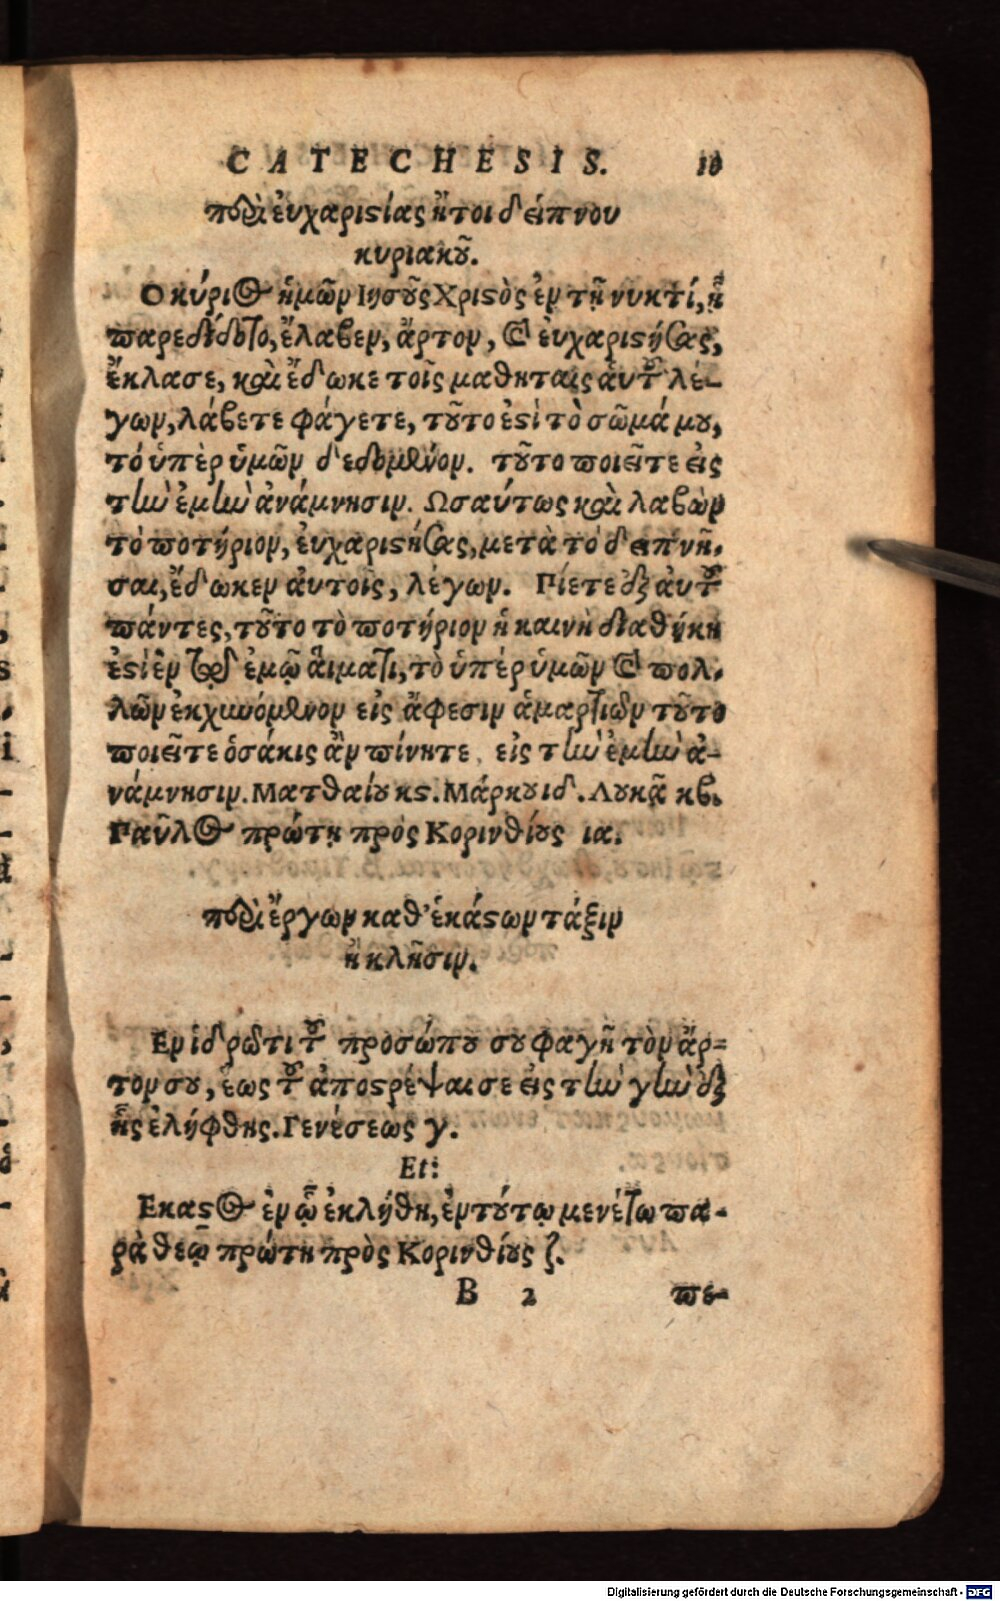 CATECHESIS. 10
περὶ ἐυχαριστίας ἤτοι δείπνου
κυριακοῦ.
Ο κύριος ἡμῶν Ιησοῦς Χριστὸς ἐν τῇ νυκτί, ᾗ
παρεδίδοτο, ἔλαβεν, ἄρτον, καὶ ἐυχαριστήσας,
ἔκλασε, καὶ ἔδωκε τοῖς μαθηταῖς ἀυτοῦ λέ-
γων, λάβετε φάγετε, τοῦτο ἐστὶ τὸ σῶμά μου,
τό ὑπὲρ ὑμῶν δεδομένον. τοῦτο ποιεῖτε εἰς
τὴν ἐμὴν ἀνάμνησιν. Ωσαύτως καὶ λαβὼν
τὸ ποτήριον, ἐυχαριστήσας, μετὰ τὸ δειπνῆ-
σαι, ἔδωκεν ἀυτοῖς, λέγων. Πίετε ἐξ ἀυτοῦ
πάντες, τοῦτο τὸ ποτήριον ἡ καινὴ διαθήκη
ἐστὶ ἐν τῷ ἐμῷ ἅιματι, τὸ ὑπὲρ ὑμῶν καὶ πολ-
λῶν ἐκχυνόμενον εἰς ἄφεσιν ἁμαρτιῶν τοῦτο
ποιεῖτε ὁσάκις ἂν πίνητε, εἰς τὴν ἐμὴν ἀ-
νάμνησιν. Ματθαίου κς. Μάρκου ιδ. Λουκᾶ κβ.
Παῦλος πρώτῃ πρὸς Κορινθίους ια.
περὶ ἔργων καθ' ἑκάστων τάξιν
ἢ κλῆσιν.
Εν ἱδρῶτι τοῦ προσώπου σου φαγῆ τὸν ἄρ-
τον σου, ἕως τοῦ ἀποστρέψαι σε εἰς τὴν γῆν ἐξ
ἧς ἐλήφθης. Γενέσεως γ.
Et:
Εκαστος ἐν ᾧ ἐκλήθη, ἐν τούτῳ μενέτω πα-
ρὰ θεῷ πρώτη πρὸς Κορινθίους ζ.
B 2 πε-
Digitalisierung gefördert durch die Deutsche Forschungsgemeinschaft - DFG